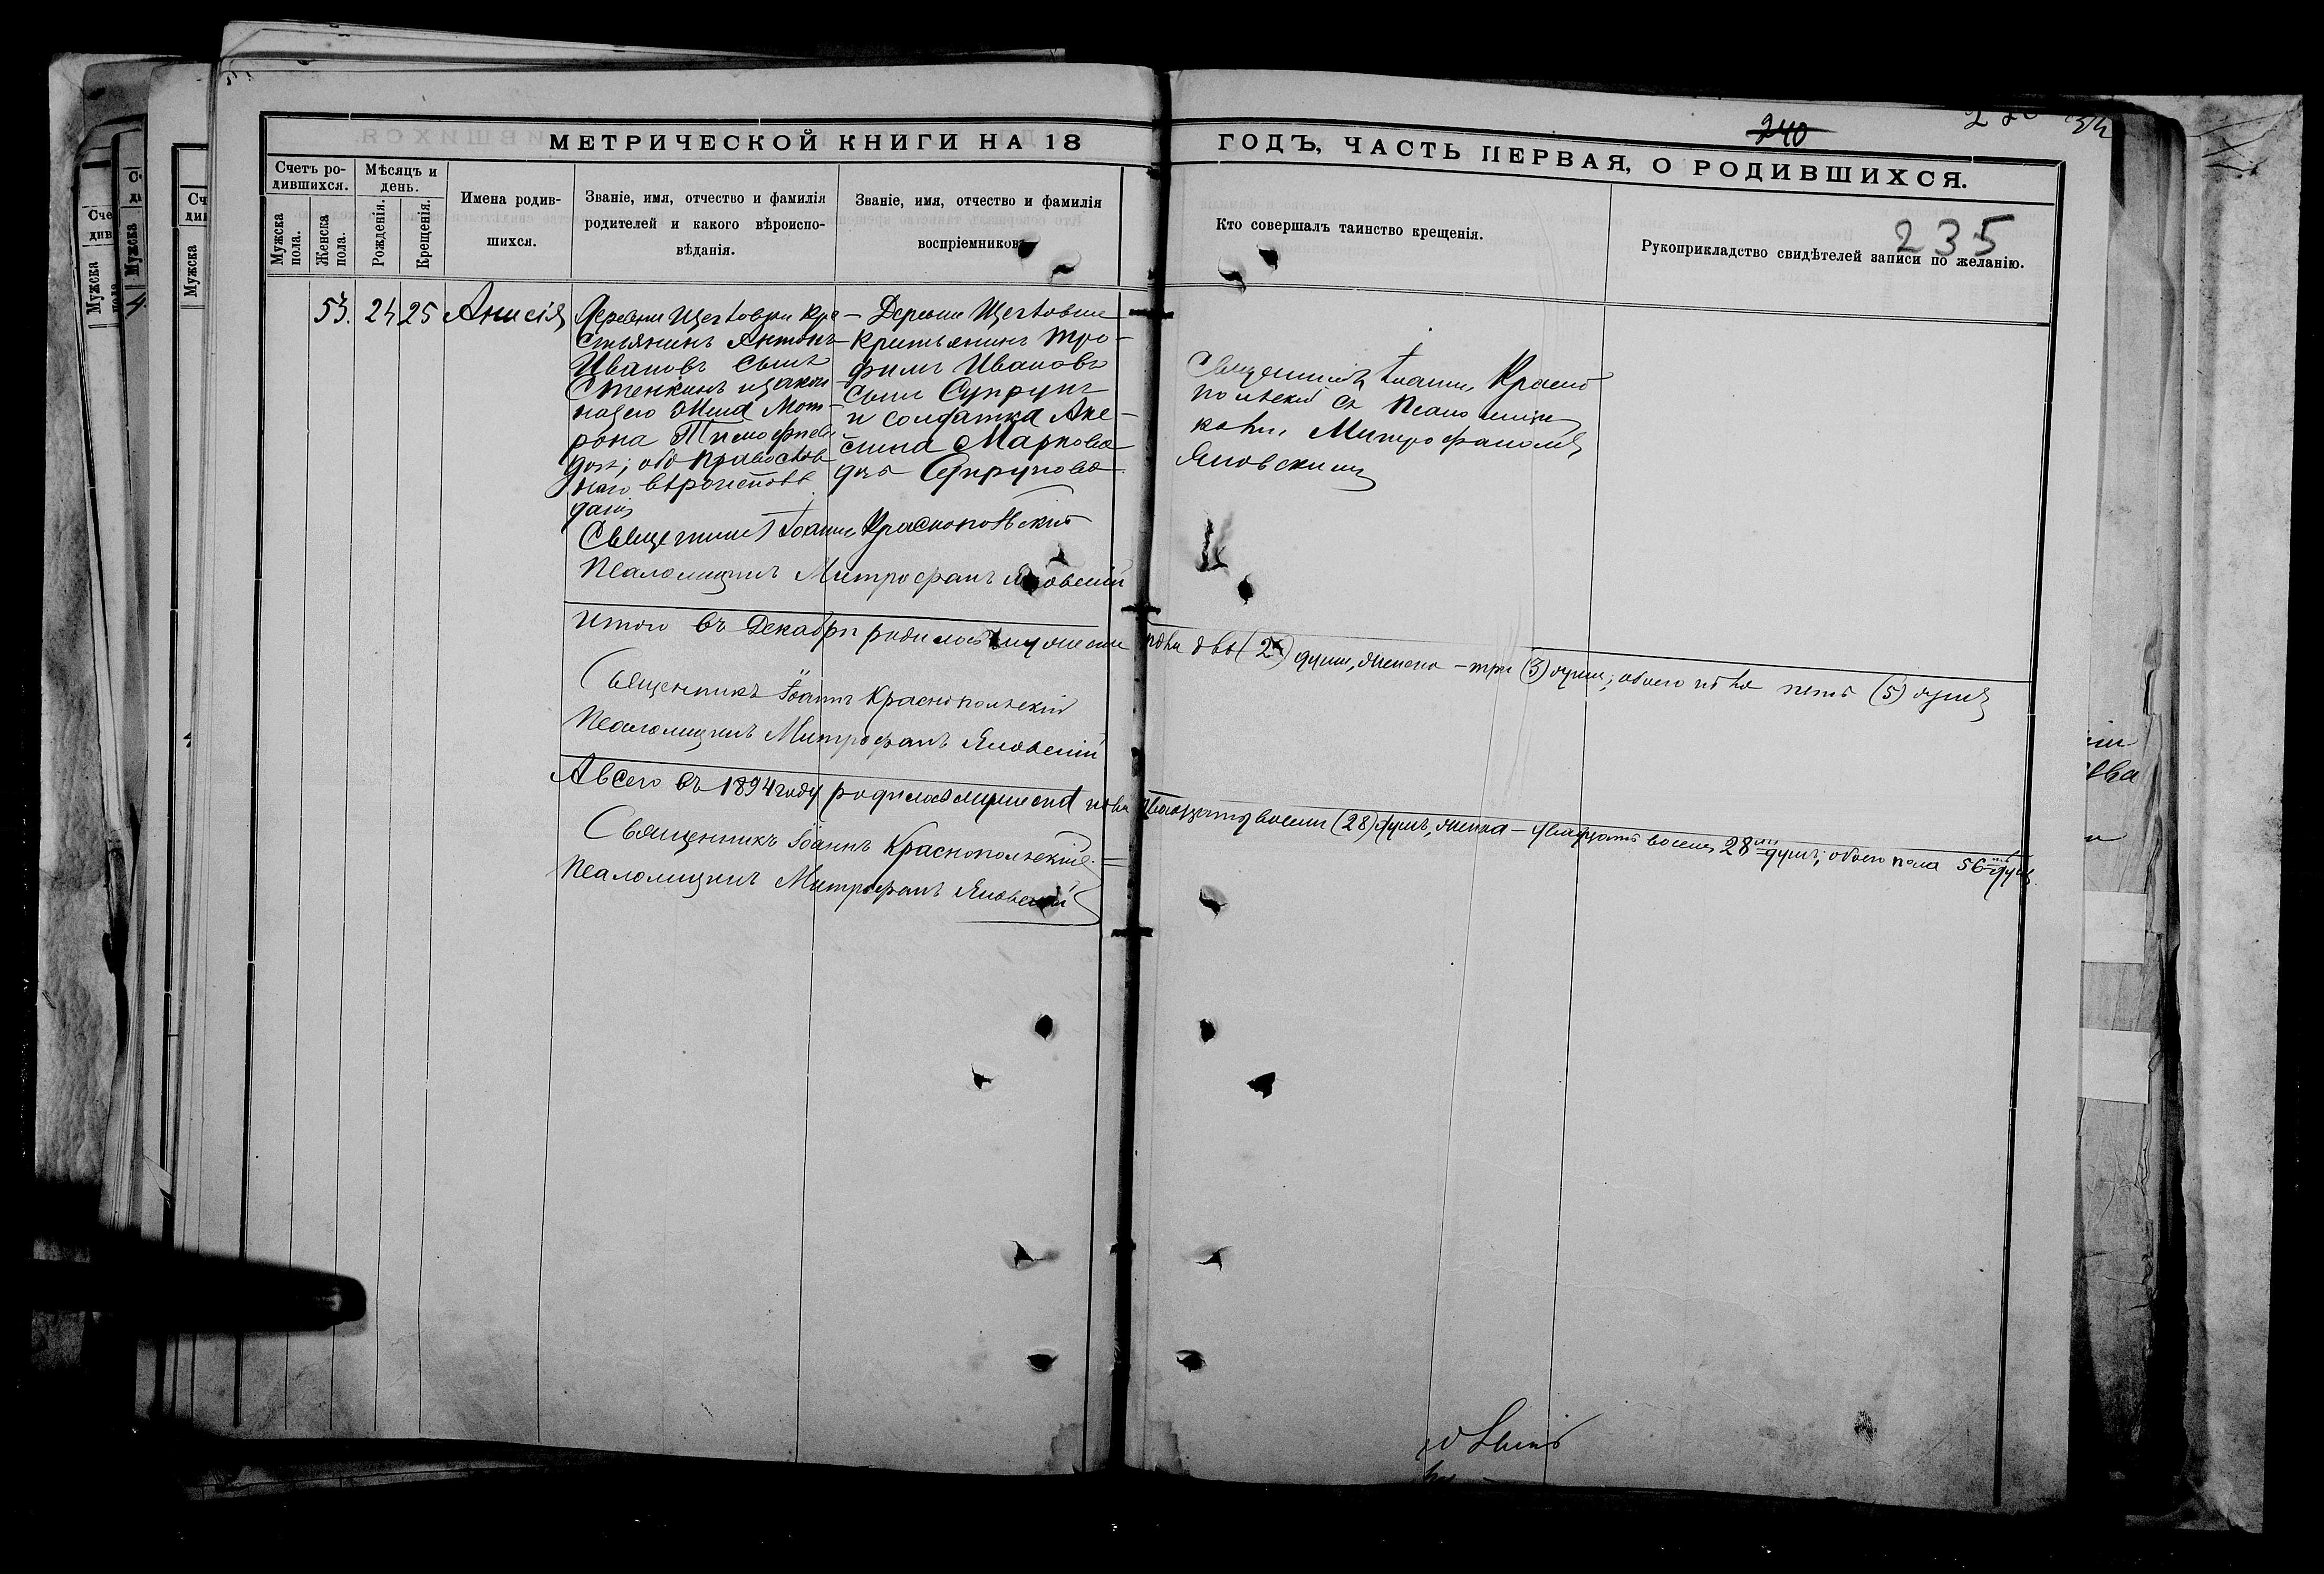 240
МЕТРИЧЕСКОЙ КНИГИ НА 18
ГОДЪ, ЧАСТЬ ПЕРВАЯ, О РОДИВШИХСЯ.
235
Счетъ ро-
дившихся.
Мужска
пола.
Женска
пола.
Мѣсяцъ и
день.
Рожденія.
Крещенія.
Имена родив-
шихся.
Званіе, имя, отчество и фамилія
родителей и какого вѣроиспо-
вѣданія.
Званіе, имя, отчество и фамилія
воспріемниковъ
Кто совершалъ таинство крещенія.
Рукоприкладство свидѣтелей записи по желанію.
53. 24 25 Анисія
Деревни Кре-
стьянинъ Антонъ
Ивановъ сынъ
Стенкинъ и закон-
ная его жена Мот-
рона Тимофеева
обо православ
наго вѣроисповѣ
данія
Деревни
Крестьянинъ Тро-
фимъ Ивановъ
сынъ Супрунъ
и солдатка Аке-
лина Маркова
Супрунова
Священникъ Іоаннъ Красно
польскій съ Псаломщи
комъ Митрофаномъ
Яновскимъ
Священникъ Іоаннъ Краснопольскій
Псаломщикъ Митрофанъ Яновскій
Итого въ Декабрѣ родилось мужеска пола два (2) души, женска - три (3) души; обоего пола пять (5) душъ
Священникъ Іоаннъ Краснопольскій
Псаломщикъ Митрофанъ Яновскій
А всего въ 1894 году родилось мужеска пола двадцать восемь (28) душъ, женска - двадцать восемь 28 душъ; обоего пола 56 душъ.
Священникъ Іоаннъ Краснопольскій
Псаломщикъ Митрофанъ Яновскій